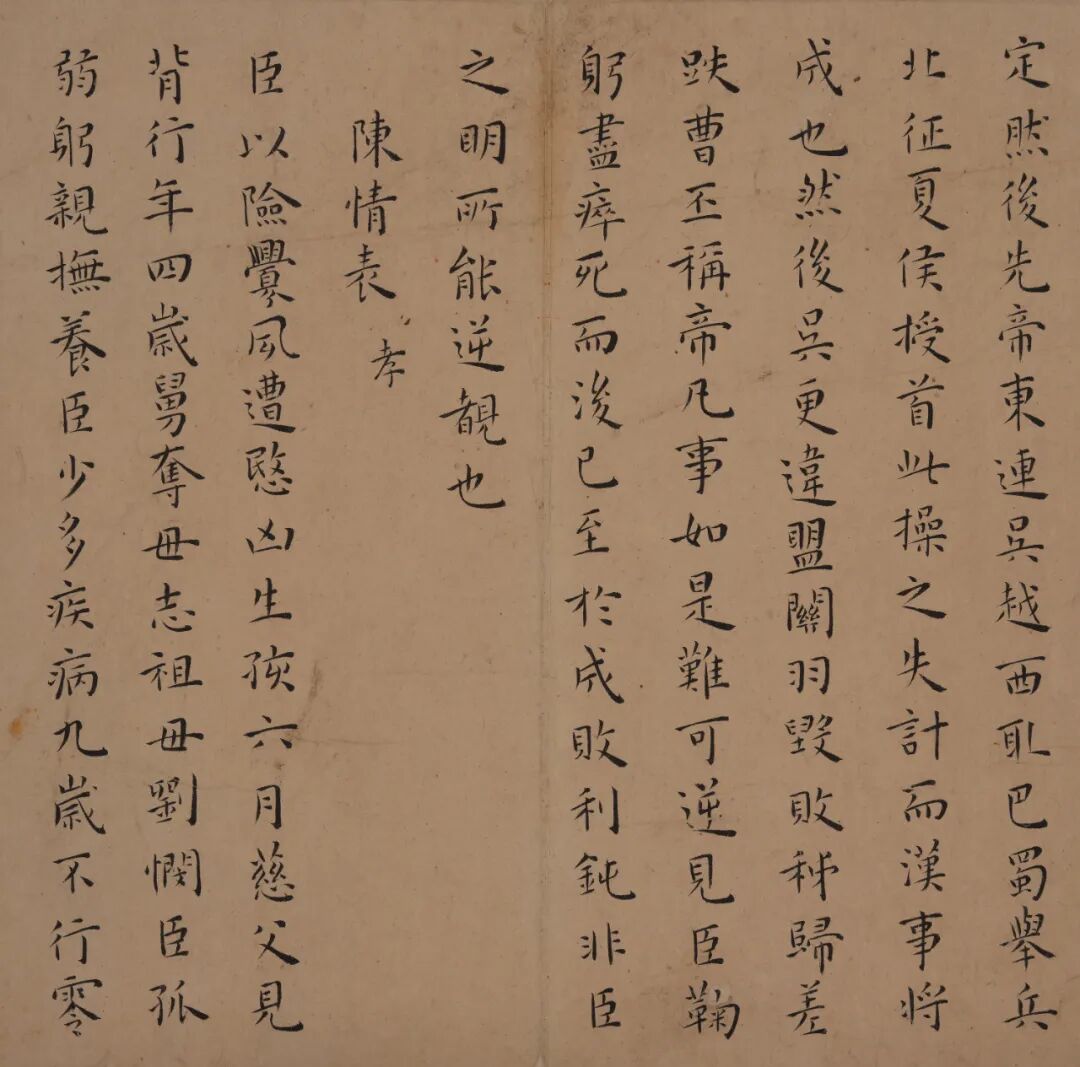 定然後先帝東連吳越西取巴蜀舉兵
北征夏侯授首此操之失計而漢事將
成也然後吳更違盟關羽毀敗秭歸差
跌曹丕稱帝凡事如是難可逆見臣鞠
躬盡瘁死而後已至於成敗利鈍非臣
之明所能逆覩也
陳情表 孝
臣以險釁夙遭愍凶生孩六月慈父見
背行年四歲舅奪母志祖母劉憫臣孤
弱躬親撫養臣少多疾病九歲不行零